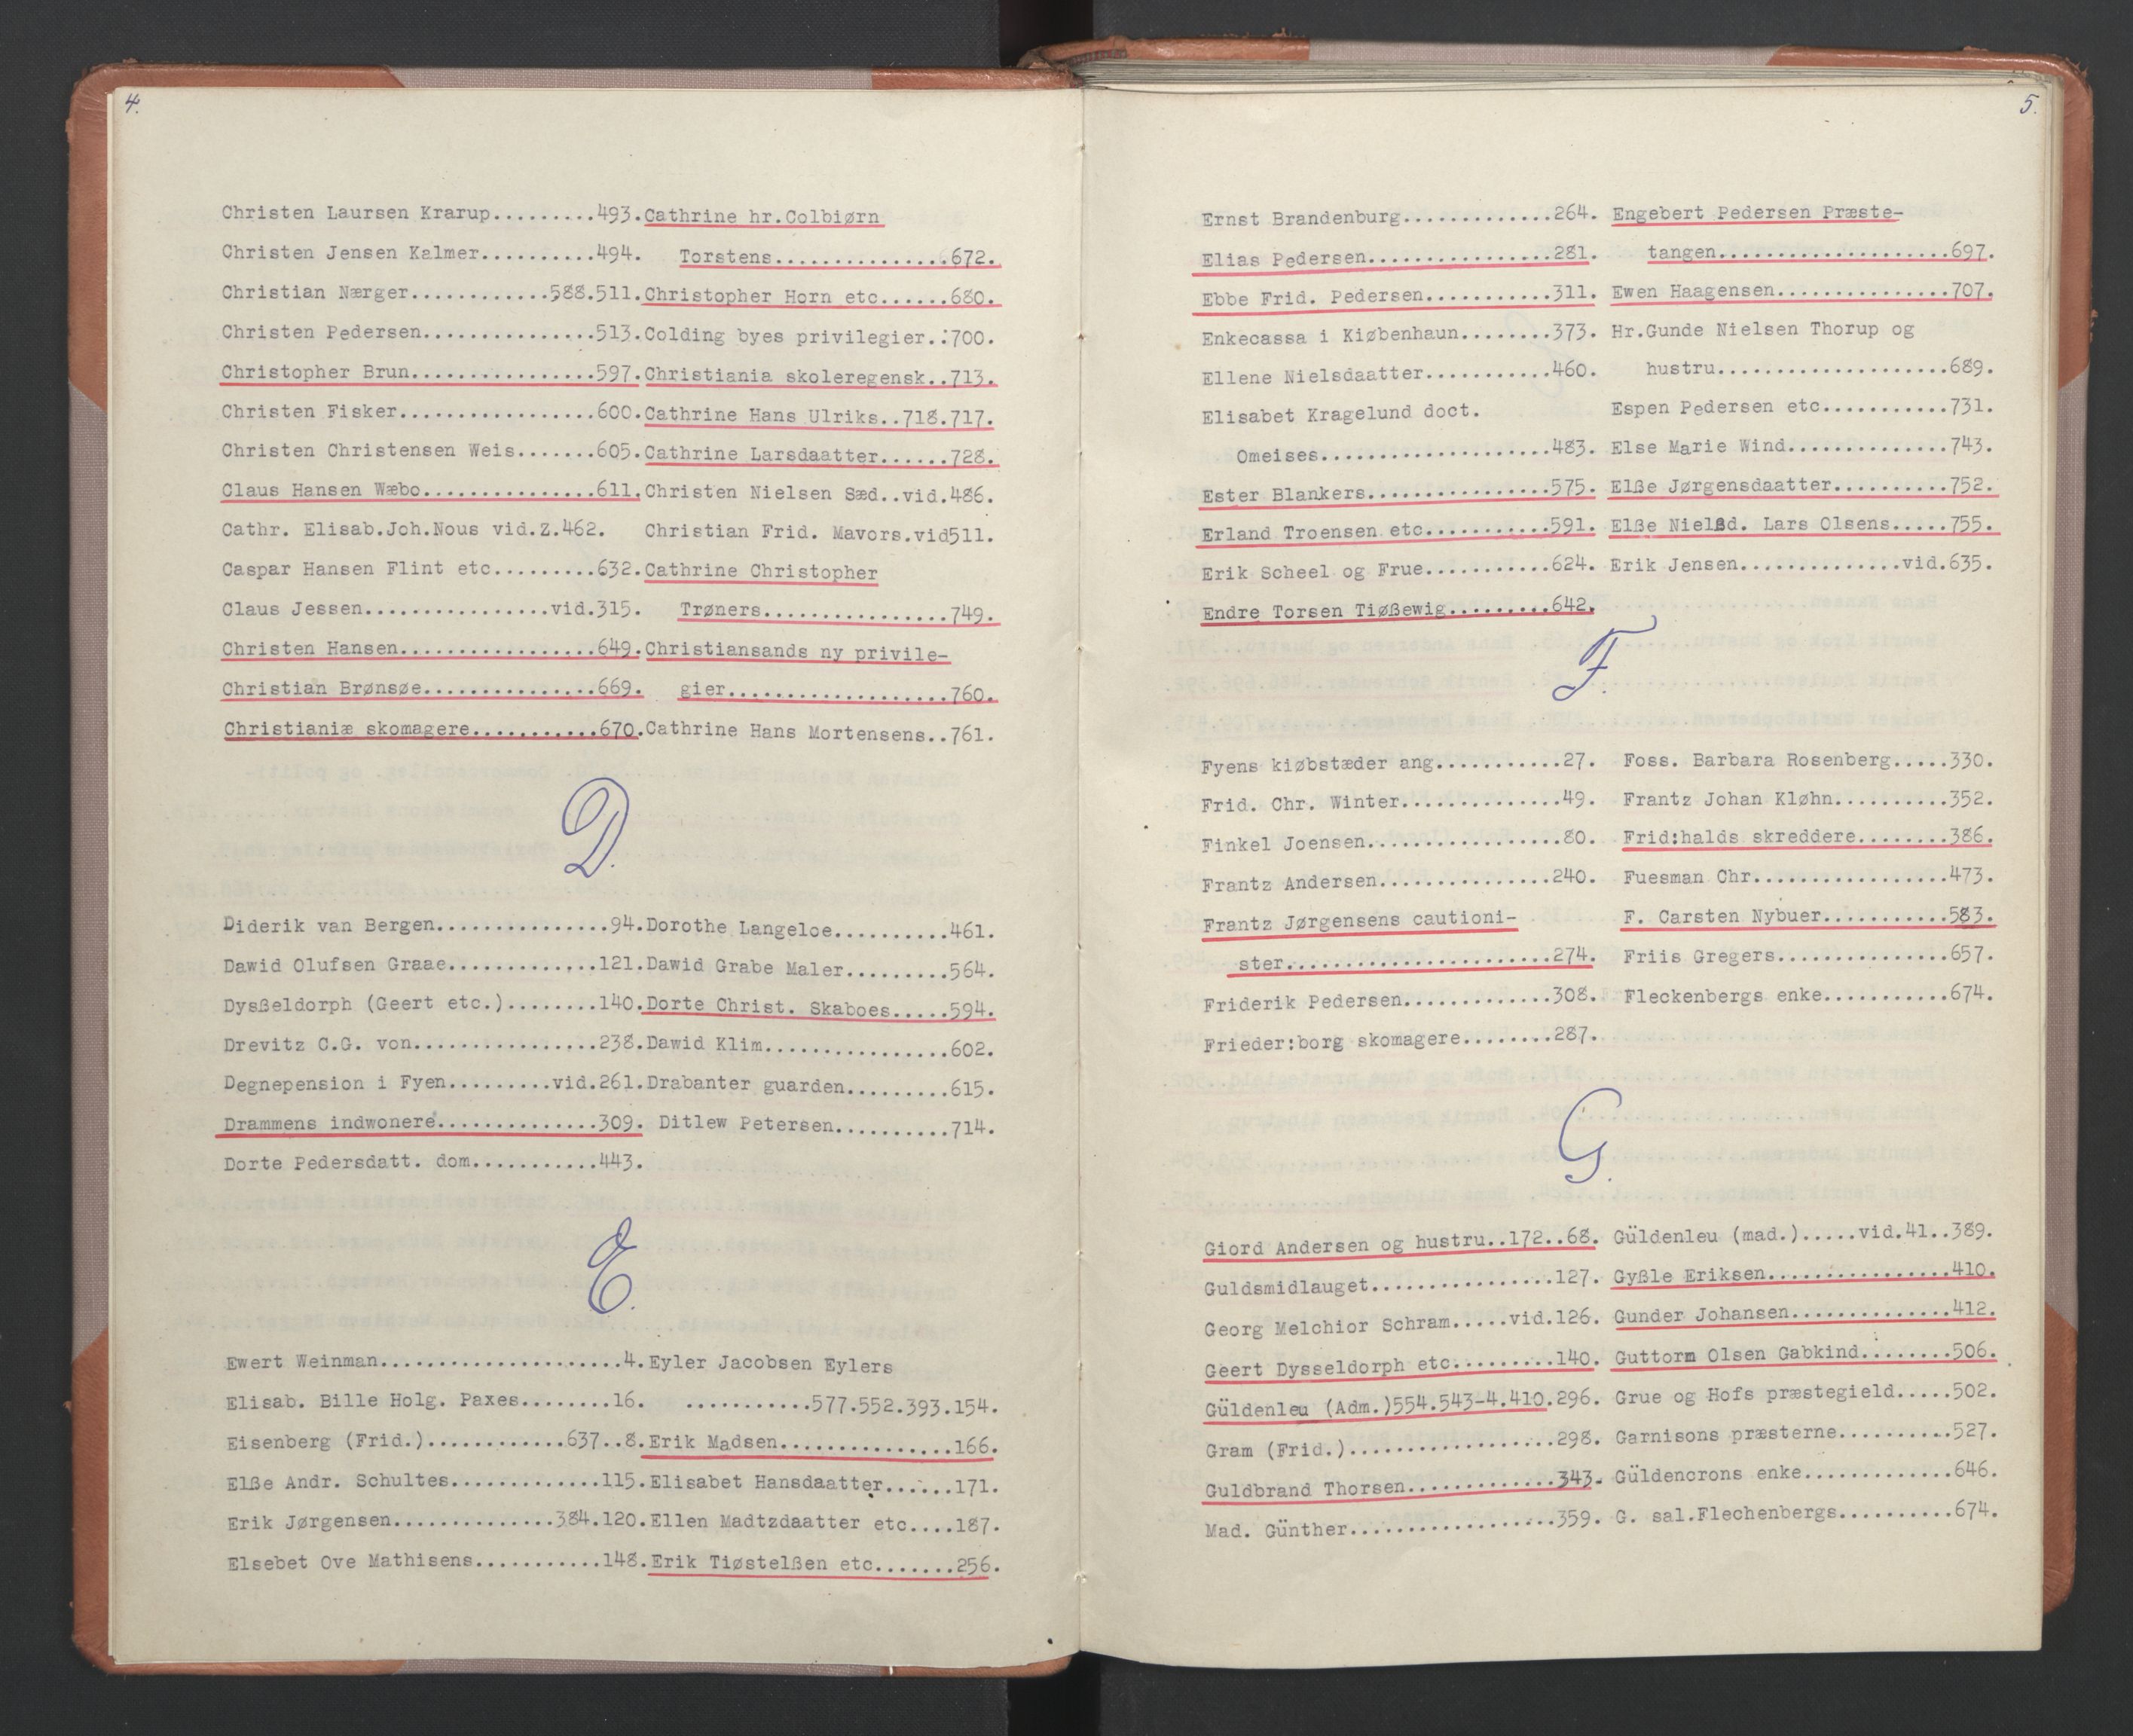 4.
Christen Laursen Krarup.........493.
Christen Jensen Kalmer..........494.
Christian Nærger............588.511.
Christen Pedersen...............513.
Christopher Brun................597.
Christen Fisker.................600.
Christen Christensen Weis.......605.
Claus Hansen Wæbo...............611.
Cathr. Elisab.Joh.Nous vid.Z.462.
Caspar Hansen Flint etc.........632.
Claus Jessen................vid.315.
Christen Hansen.................649.
Christian Brønsøe...............669.
Christianiæ skomagere...........670.
Cathrine hr.Colbiørn
Torstens...............672.
Christopher Horn etc......680.
Colding byes privilegier.:700.
Christiania skoleregensk..713.
Cathrine Hans Ulriks..718.717.
Cathrine Larsdaatter......728.
Christen Nielsen Sæd..vid.486.
Christian Frid. Mavors.vid511.
Cathrine Christopher
Trøners................749.
Christiansands ny privile-
gier...................760.
Cathrine Hans Mortensens..761.
D.
Diderik van Bergen...............94.
Dawid Olufsen Graae.............121.
Dysßeldorph (Geert etc.)........140.
Drevitz C.G. von................238.
Degnepension i Fyen.........vid.261.
Drammens indwonere..............309.
Dorte Pedersdatt. dom...........443.
Dorothe Langeloe..........461.
Dawid Grabe Maler.........564.
Dorte Christ. Skaboes.....594.
Dawid Klim................602.
Drabanter guarden.........615.
Ditlew Petersen..........714.
E.
Ewert Weinman.....................4.
Elisab. Bille Holg. Paxes........16.
Eisenberg (Frid.)............637..8.
Elße Andr. Schultes.............115.
Erik Jørgensen..............384.120.
Elsebet Ove Mathisens...........148.
Eyler Jacobsen Eylers
...........577.552.393.154.
Erik Madsen...............166.
Elisabet Hansdaatter......171.
Ellen Madtzdaatter etc....187.
Erik Tiøstelßen etc.......256.
5.
Ernst Brandenburg.............264.
Elias Pedersen................281.
Ebbe Frid. Pedersen...........311.
Enkecassa i Kiøbenhaun........373.
Ellene Nielsdaatter...........460.
Elisabet Kragelund doct.
Omeises....................483.
Ester Blankers................575.
Erland Troensen etc...........591.
Erik Scheel og Frue...........624.
Endre Torsen Tiøßewig.........642.
Engebert Pedersen Præste-
tangen....................697.
Ewen Haagensen...............707.
Hr.Gunde Nielsen Thorup og
hustru....................689.
Espen Pedersen etc...........731.
Else Marie Wind..............743.
Elße Jørgensdaatter..........752.
Elße Nielßd. Lars Olsens.....755.
Erik Jensen..............vid.635.
F.
Fyens kiøbstæder ang...........27.
Frid. Chr. Winter..............49.
Finkel Joensen.................80.
Frantz Andersen...............240.
Frantz Jørgensens cautioni-
ster.......................274.
Friderik Pedersen.............308.
Frieder:borg skomagere........287.
Foss. Barbara Rosenberg.....330.
Frantz Johan Kløhn..........352.
Frid:halds skreddere........386.
Fuesman Chr.................473.
F. Carsten Nybuer...........583.
Friis Gregers...............657.
Fleckenbergs enke...........674.
G.
Giord Andersen og hustru..172..68.
Guldsmidlauget................127.
Georg Melchior Schram.....vid.126.
Geert Dysseldorph etc.........140.
Güldenleu (Adm.)554.543-4.410.296.
Gram (Frid.)..................298.
Guldbrand Thorsen.............343.
Mad. Günther..................359.
Güldenleu (mad.).....vid.41..389.
Gyßle Eriksen................410.
Gunder Johansen..............412.
Guttorm Olsen Gabkind........506.
Grue og Hofs præstegield.....502.
Garnisons præsterne..........527.
Güldencrons enke.............646.
G. sal.Flechenbergs..........674.